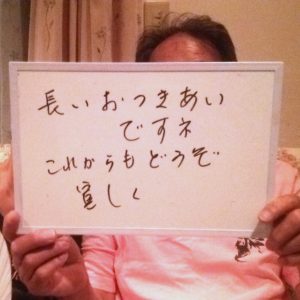 長いおつきあい
ですネ
これからもどうぞ
宜しく